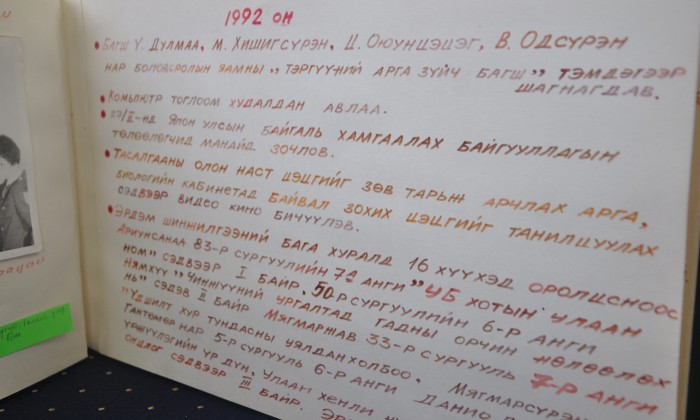 1992 он
• Багш Ү. Дулмаа, М. Хишигсүрэн, Ц. Оюунцэцэг, В. Одсүрэн
нар боловсролын яамны „ тэргүүний арга зүйч багш” тэмдэгээр
шагнагдав.
• Компьютр тоглоом худалдан авлаа.
• Япон улсын байгаль хамгаалах байгууллагын
төлөөлөгчид манайд зочлов.
• Тасалгааны олон наст цэцгийг зөв тарьж арчлах арга,
биологийн кабинетад байвал зохих цэцгийг танилцуулах
сэдвээр видео кино бичүүлэв.
• Эрдэм шинжилгээний бага хуралд 16 хүүхэд оролцсноос
Ариунсанаа 83-р сургуулийн 7а анги „ УБ хотын улаан
ном” сэдвээр I байр. 50р сургуулийн 6-р анги
Нямхүү „ Чинжүүний ургалтад гадны орчин нөлөөлөх
нь” сэдэв II байр Мягмаржав 33-р сургууль 7-р анги
"Үдшилт хур тундасны уялдан холбоо. Мягмарсүрэн
Гантөмөр нар 5-р сургууль 6-р анги Данио
үржүүлэгийн үр дүн, Улаан хенли
ондлог сэдвээр III байр.